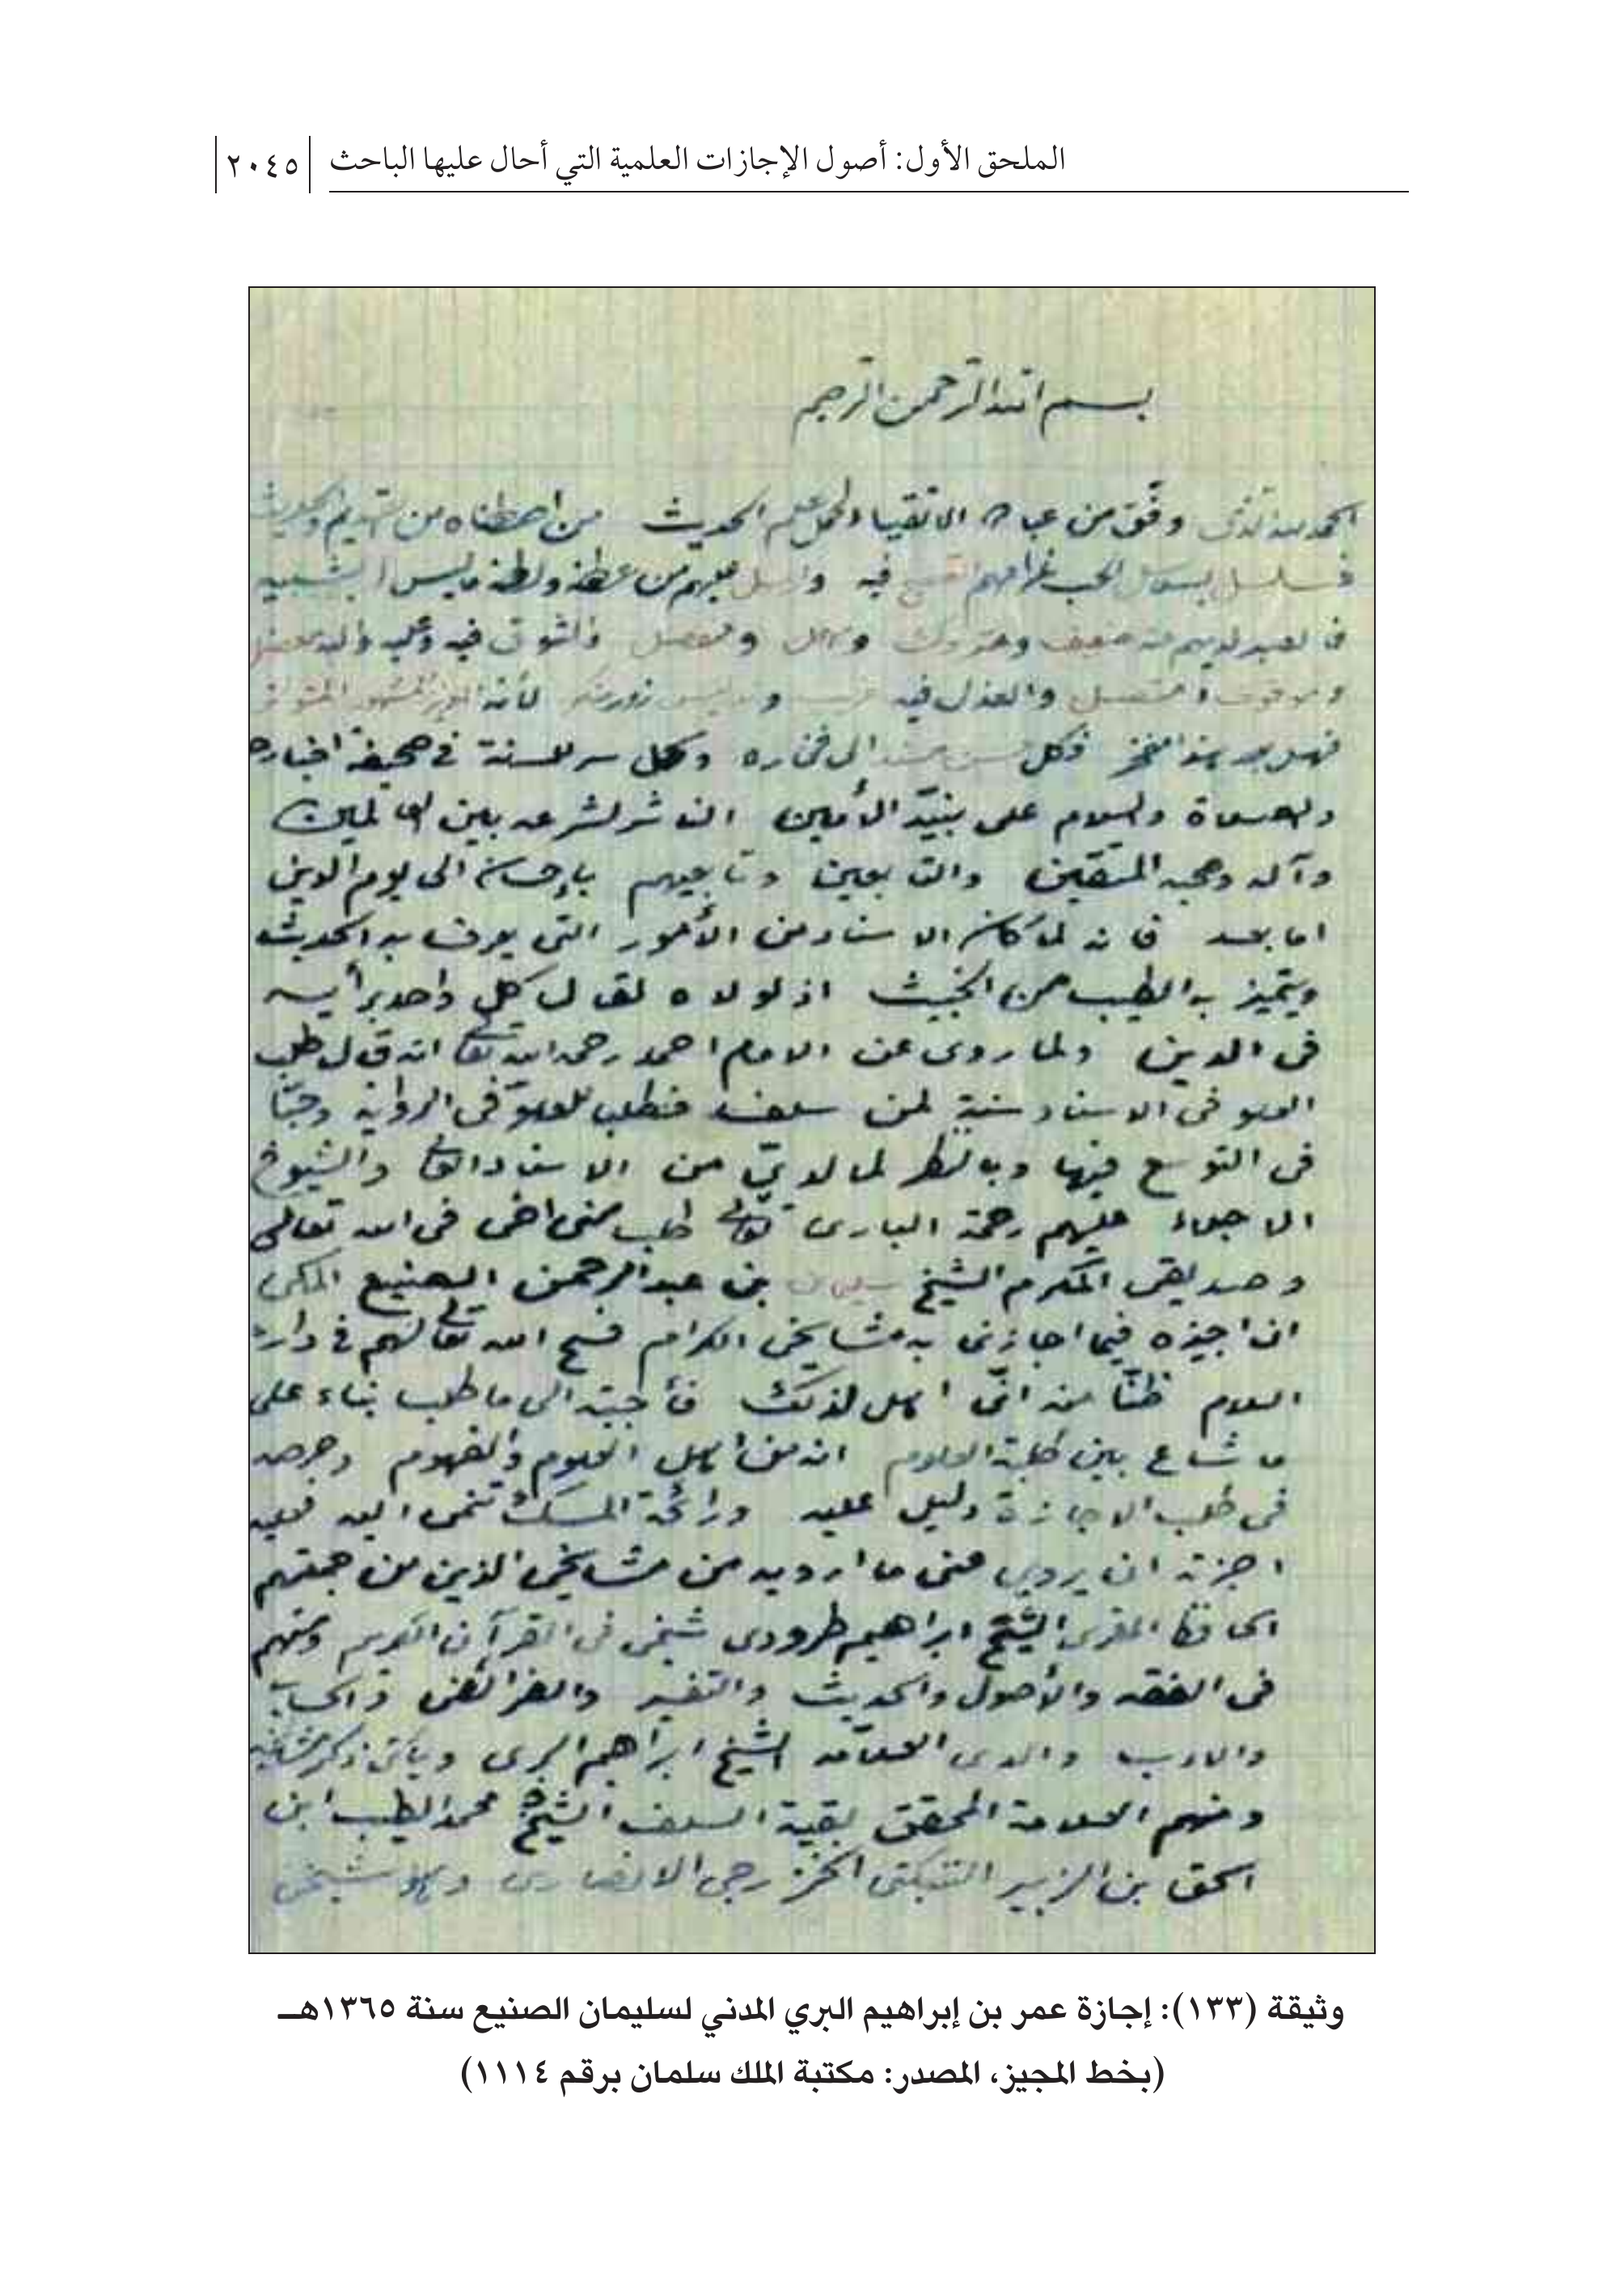 الملحق الأول: أصول الإجازات العلمية التي أحال عليها الباحث ٢٠٤٥
بسم الله الرحمن الرحيم
الحمد لله الذى وفق من عباده الاتقياء لحمل علم الحديث من اصطفاه من القديم والحديث
عليهم من عطفه ولطفه ماليس
والشوق فيه
والعذل فيه لأنه
فكل الى فخاره وكل سر للسنة في صحيفة اخباره
والصلاة والسلام على نبيّه الأمين الناشر لشرعه بين العالمين
وآله وصحبه المتقين والتابعين وتابعيهم بإحسان الى يوم الدين
اما بعد فانه لما كان الاسناد من الأمور التى يعرف به الحديث
ويتميز به الطيب من الخبيث اذ لولاه لقال كل واحد برأيه
فى الدين ولما روى عن الامام احمد رحمه الله تعالى انه قال طلب
العلو فى الاسناد سنة لمن سلف فطلب للعلوّ فى الرواية وحبّا
فى التوسع فيها وبالنظر لما لديّ من الاسناد العالى والشيوخ
الاجلاء عليهم رحمة البارى تعالى طلب منى اخى فى الله تعالى
وصديقى المكرم الشيخ سليمان بن عبدالرحمن الصنيع المكى
ان اجيزه فيما اجازنى به مشايخى الكرام فسح الله تعالى لهم في دار
السلام ظنّا منه انّى اهل لذلك فأجبته الى ما طلب بناء على
ما شاع بين طلبة العلوم انه من اهل العلوم والفهوم وحرصه
فى طلب الاجازة دليل عليه ورائحة المسك تنمى اليه فعليه
اجزته ان يروي عنى ما ارويه من مشايخي الذين من جملتهم
الحافظ المقرى الشيخ ابراهيم طرودى شيخى فى القرآن الكريم ومنهم
فى الفقه والأصول والحديث والتفسير والفرائض والحساب
والادب والدى العلامه الشيخ ابراهيم البرى ويأتى ذكر مشايخه
ومنهم العلامة المحقق بقية السلف الشيخ محمد الطيب ابن
اسحق بن الزبير التنبكتى الخزرجى الانصارى وهو شيخى
وثيقة (١٣٣): إجازة عمر بن إبراهيم البري المدني لسليمان الصنيع سنة ١٣٦٥هـ
(بخط المجيز، المصدر: مكتبة الملك سلمان برقم ١١١٤)